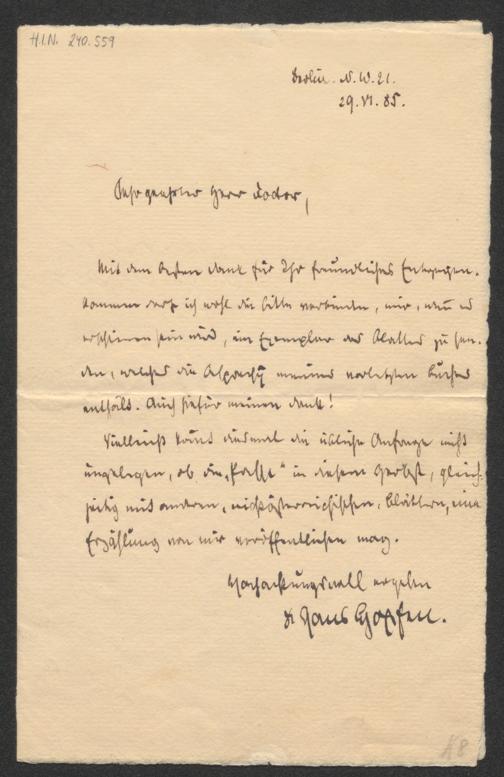 H.I.N. 240.559
Berlin. N.W.21.
29.VI.85.
Sehr geehrter Herr Doctor,
Mit dem besten Dank für Ihr freundliches Entgegen-
kommen darf ich wohl die Bitte verbinden, mir, wenn es
erschienen sein wird, ein Exemplar des Blattes zu sen-
den, welches die Besprechg meines vorletzten Buches
enthält. Auch hiefür meinen Dank!
Vielleicht kommt diesmal die übliche Anfrage nicht
ungelegen, ob die „Presse" in diesem Herbst, gleich-
zeitig mit anderen, nichtösterreichischen, Blättern, eine
Erzählung von mir veröffentlichen mag.
Hochachtungsvoll ergeben
Dr Hans Hopfen.